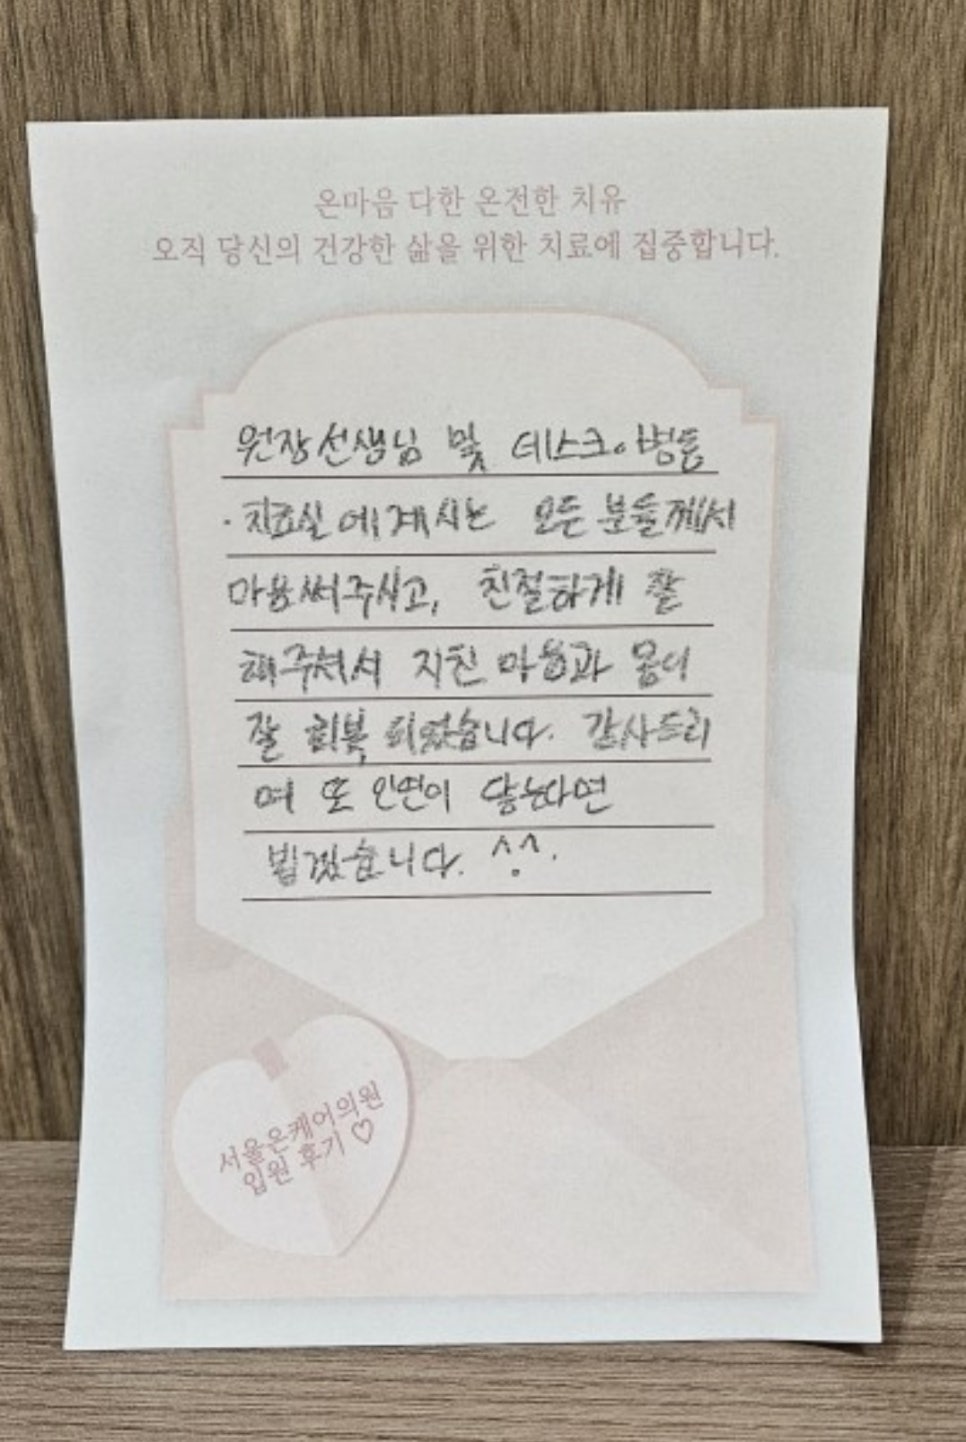 온마음 다한 온전한 치유
오직 당신의 건강한 삶을 위한 치료에 집중합니다.
원장선생님 및 데스크, 병동
·치료실에 계시는 모든 분들께서
마음써주시고, 친절하게 잘
해주셔서 지친 마음과 몸이
잘 회복 되었습니다. 감사드리
며 또 인연이 닿는다면
뵙겠습니다. ^.^.
서울온케어의원
입원 후기 ♡